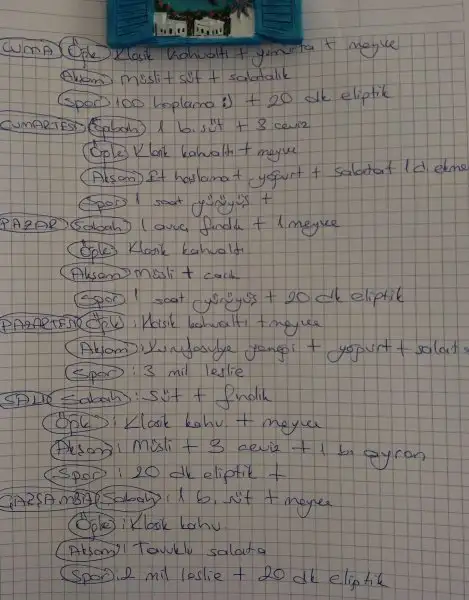 CUMA Öğle Klasik kahvaltı + yumurta + meyve
Akşam müsli + süt + salatalık
Spor 100 hoplama :) + 20 dk eliptik
CUMARTESİ Sabah 1 b. süt + 3 ceviz
Öğle Klasik kahvaltı + meyve
Akşam Et haşlama + yoğurt + salata + 1 d. ekme
Spor 1 saat yürüyüş +
PAZAR Sabah 1 avuç fındık + 1 meyve
Öğle Klasik kahvaltı
Akşam müsli + cacık
Spor 1 saat yürüyüş + 20 dk eliptik
PAZARTESİ Öğle : Klasik kahvaltı + meyve
Akşam : Kurufasulye yemeği + yoğurt + salata
Spor : 3 mil leslie
SALI Sabah : Süt + fındık
Öğle : Klasik kahv. + meyve
Akşam : Müsli + 3 ceviz + 1 b. ayran
Spor : 20 dk eliptik +
ÇARŞAMBA Sabah : 1 b. süt + meyve
Öğle : Klasik kahv
Akşam : Tavuklu salata
Spor : 2 mil leslie + 20 dk eliptik